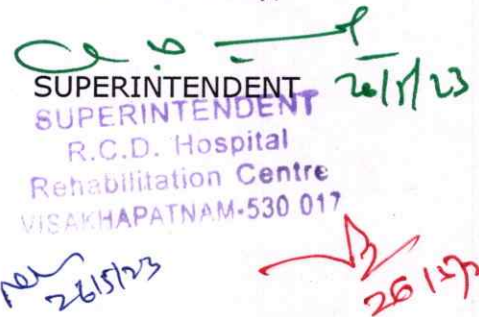 SUPERINTENDENT 26/5/23
SUPERINTENDENT
R.C.D. Hospital
Rehabilitation Centre
VISAKHAPATNAM-530 017
26/5/23